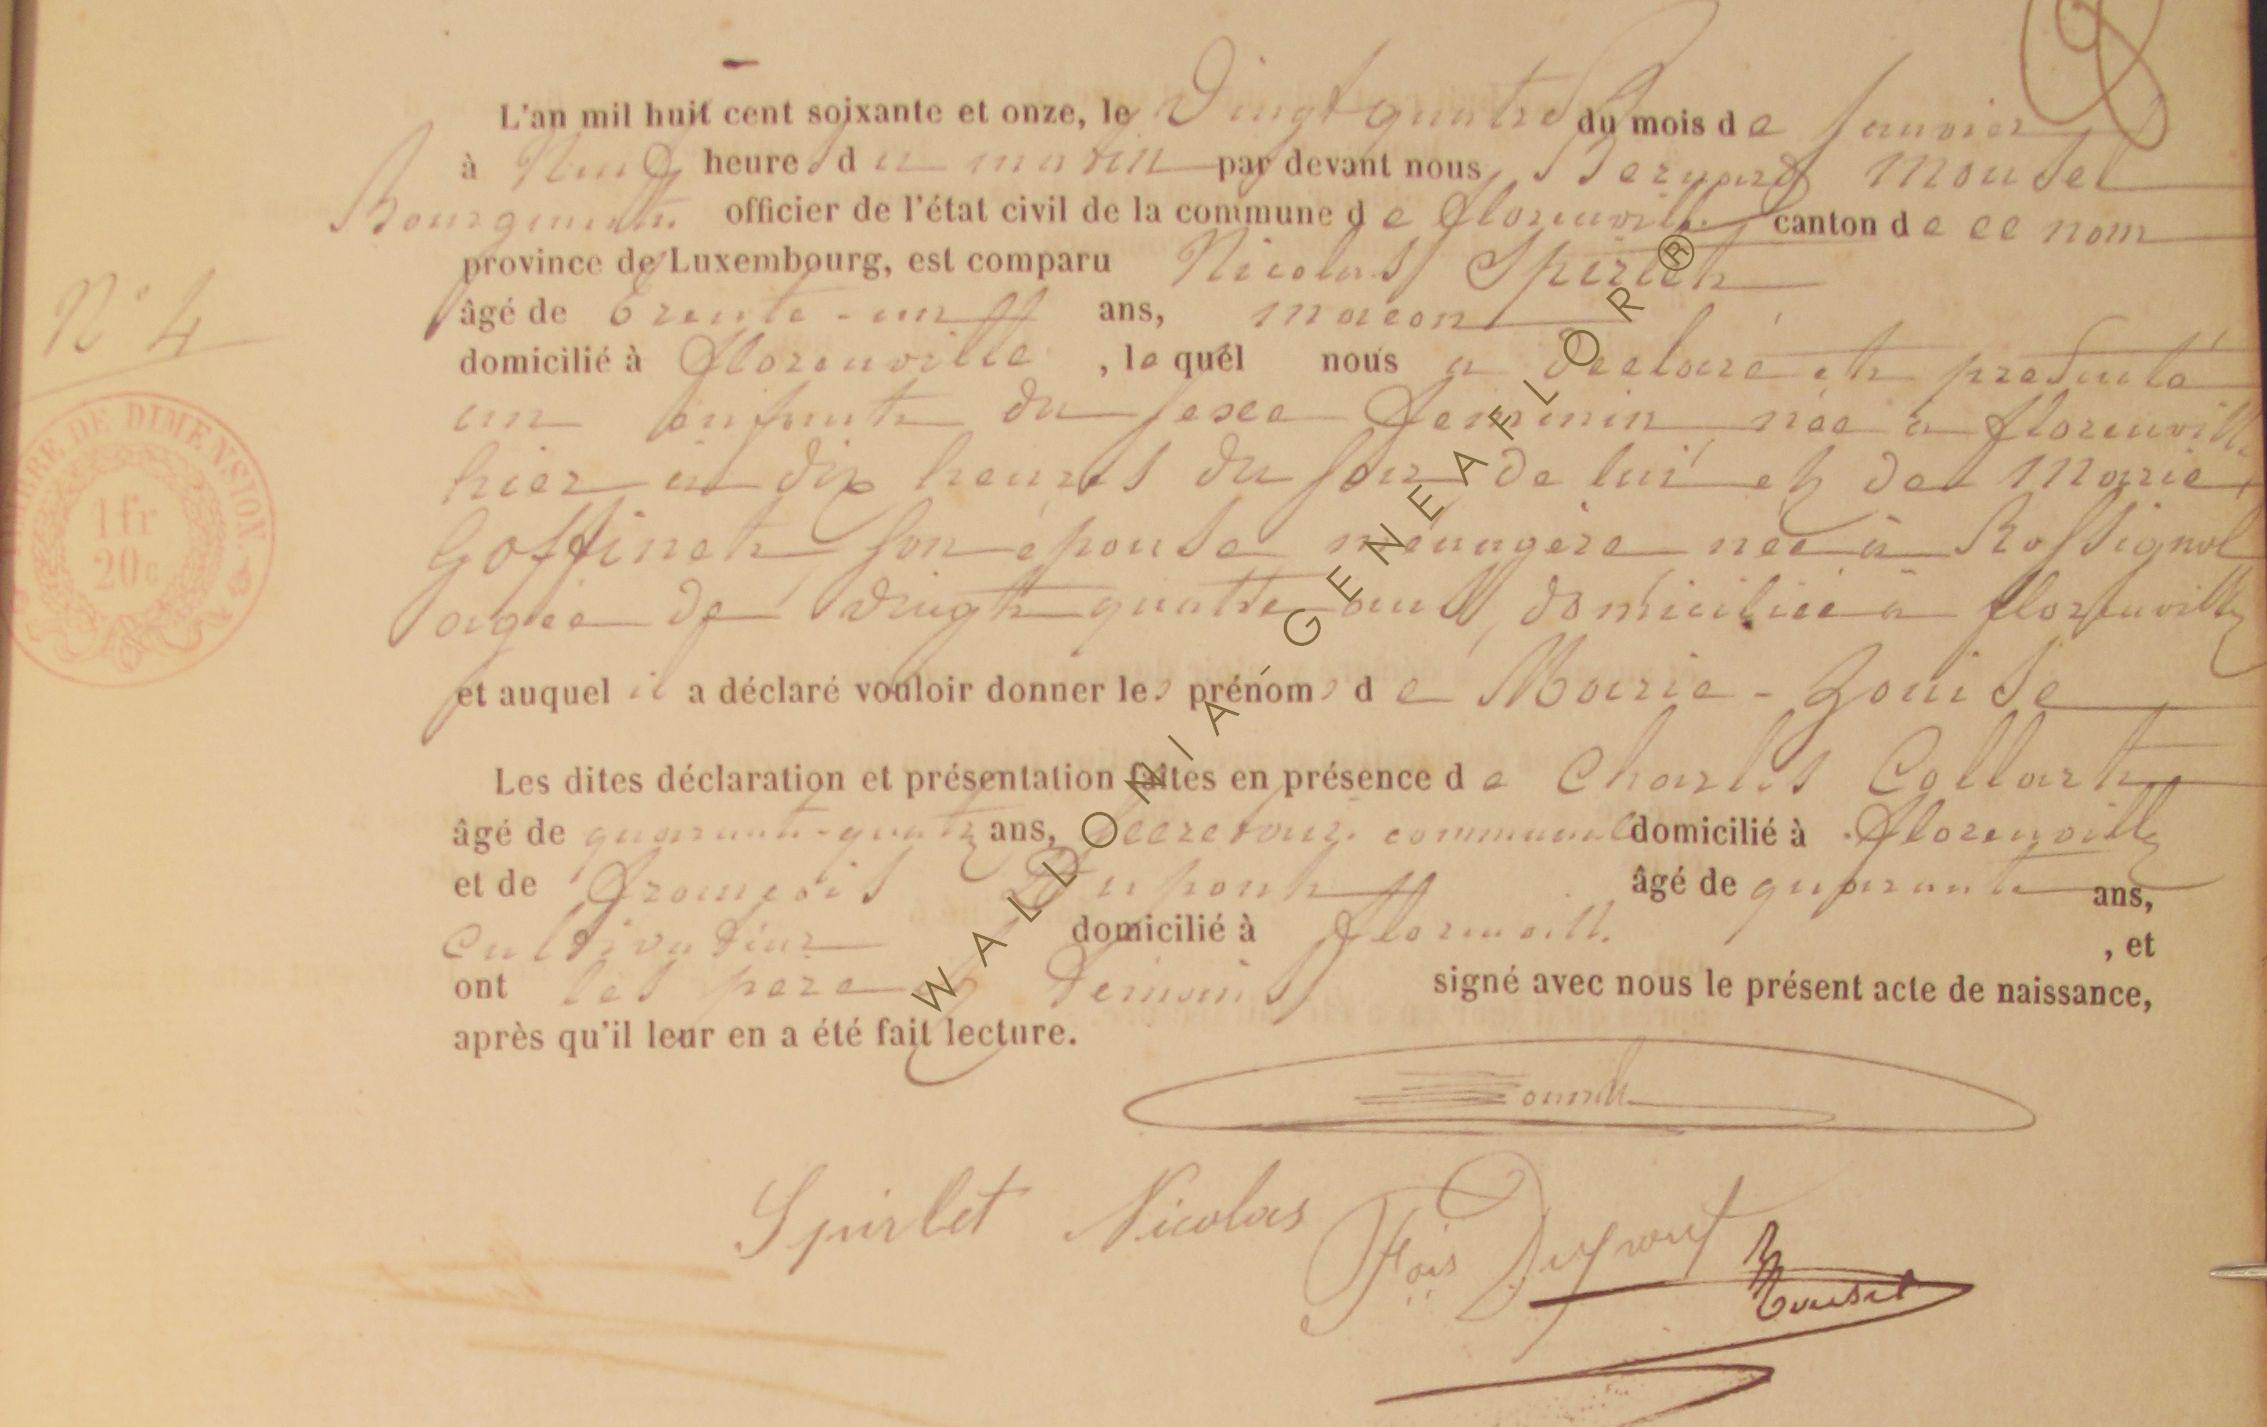 L'an mil huit cent soixante et onze, le Vingt quatre du mois de Janvier
à Neuf heures du matin par devant nous Bernard Mousel
Bourgmestre officier de l'état civil de la commune de florenville canton de ce nom
province de Luxembourg, est comparu Nicolas Spirlet
N° 4
âgé de trente-un ans, macon
domicilié à florenville, lequel nous a déclaré et presenté
TIMBRE DE DIMENSION.
1 fr
20 c
un enfant du sexe feminin née a florenville
hier à dix heures du soir de lui et de Marie
Goffinet son épouse ménagère née à Rossignol
agée de vingt quatre ans, domiciliée à florenville
et auquel il a déclaré vouloir donner les prénoms de Marie-Louise
Les dites déclaration et présentation faites en présence de Charles Collart
âgé de quarante-quatre ans, secretaire communal domicilié à florenville
et de François Dupont âgé de quarante ans,
cultivateur domicilié à florenville , et
ont les pere et temoins signé avec nous le présent acte de naissance,
après qu'il leur en a été fait lecture.
Spirlet Nicolas
Fois Dupont
Mousel
WALLONIA-GENEAFLOR ®